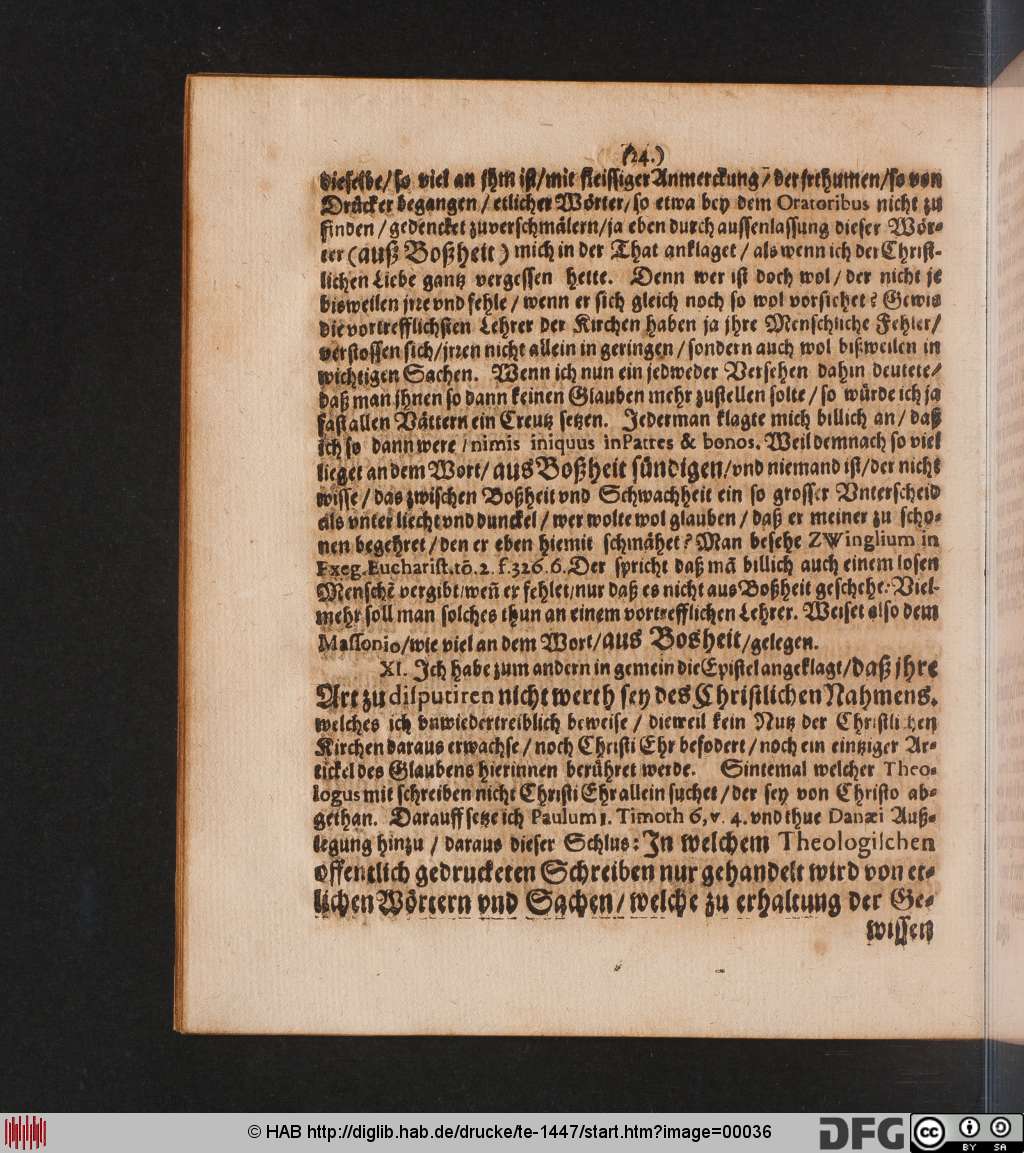 (24.)
dieselbe/so viel an jhm ist/mit fleissiger Anmerckung/der jrthumen/so von
Drücker begangen/etlicher Wörter/so etwa bey dem Oratoribus nicht zu
finden/gedencket zuverschmälern/ja eben durch aussenlassung dieser Wör-
ter (auß Boßheit) mich in der That anklaget/als wenn ich der Christ-
lichen Liebe gantz vergessen hette. Denn wer ist doch wol/der nicht je
bisweilen jrre vnd fehle/wenn er sich gleich noch so wol vorsichet? Gewis
die vortrefflichsten Lehrer der Kirchen haben ja jhre Menschliche Fehler/
verstossen sich/jrren nicht allein in geringen/sondern auch wol bißweilen in
wichtigen Sachen. Wenn ich nun ein jedweder Versehen dahin deutete/
daß man jhnen so dann keinen Glauben mehr zustellen solte/so würde ich ja
fast allen Vättern ein Creutz setzen. Jederman klagte mich billich an/daß
ich so dann were/nimis iniquus in Patres & bonos. Weil demnach so viel
lieget an dem Wort/aus Boßheit sündigen/vnd niemand ist/der nicht
wisse/das zwischen Boßheit vnd Schwachheit ein so grosser Vnterscheid
als vnter liecht vnd dunckel/wer wolte wol glauben/daß er meiner zu scho-
nen begehret/den er eben hiemit schmähet? Man besehe ZWinglium in
Exeg. Eucharist. tō. 2. f. 326. 6. Der spricht daß mā billich auch einem losen
Menschē vergibt/weñ er fehlet/nur daß es nicht aus Boßheit geschehe. Viel-
mehr soll man solches thun an einem vortrefflichen Lehrer. Weiset also dem
Massonio/wie viel an dem Wort/aus Bosheit/gelegen.
XI. Jch habe zum andern in gemein die Epistel angeklagt/daß jhre
Art zu disputiren nicht werth sey des Christlichen Nahmens.
welches ich vnwiedertreiblich beweise/dieweil kein Nutz der Christlichen
Kirchen daraus erwachse/noch Christi Ehr befodert/noch ein eintziger Ar-
tickel des Glaubens hierinnen berühret werde. Sintemal welcher Theo-
logus mit schreiben nicht Christi Ehr allein suchet/der sey von Christo ab-
gethan. Darauff setze ich Paulum 1. Timoth 6, v. 4. vnd thue Danæi Auß-
legung hinzu/daraus dieser Schlus: Jn welchem Theologischen
offentlich gedrucketen Schreiben nur gehandelt wird von et-
lichen Wörtern vnd Sachen/welche zu erhaltung der Ge-
wissen
© HAB http://diglib.hab.de/drucke/te-1447/start.htm?image=00036
DFG
cc
BY SA